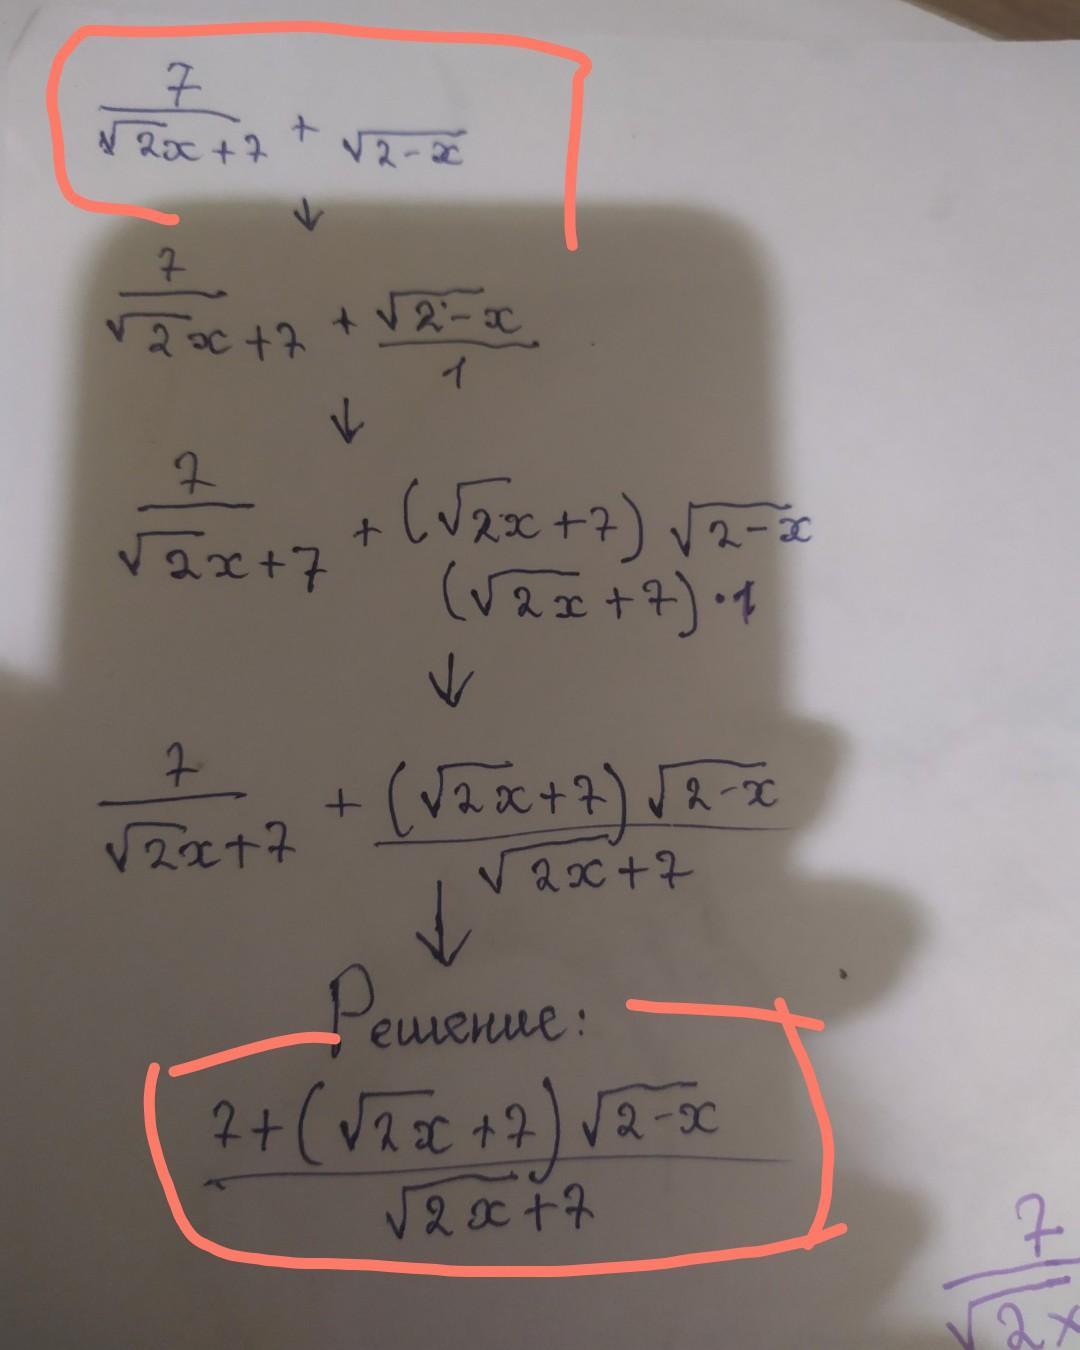 7
√2x+7 + √2-x
↓
7
√2x+7 + √2-x
1
↓
7
√2x+7 + (√2x+7) √2-x
(√2x+7)·1
↓
7
√2x+7 + (√2x+7) √2-x
√2x+7
↓
Решение:
7+(√2x+7) √2-x
√2x+7
7
√2x